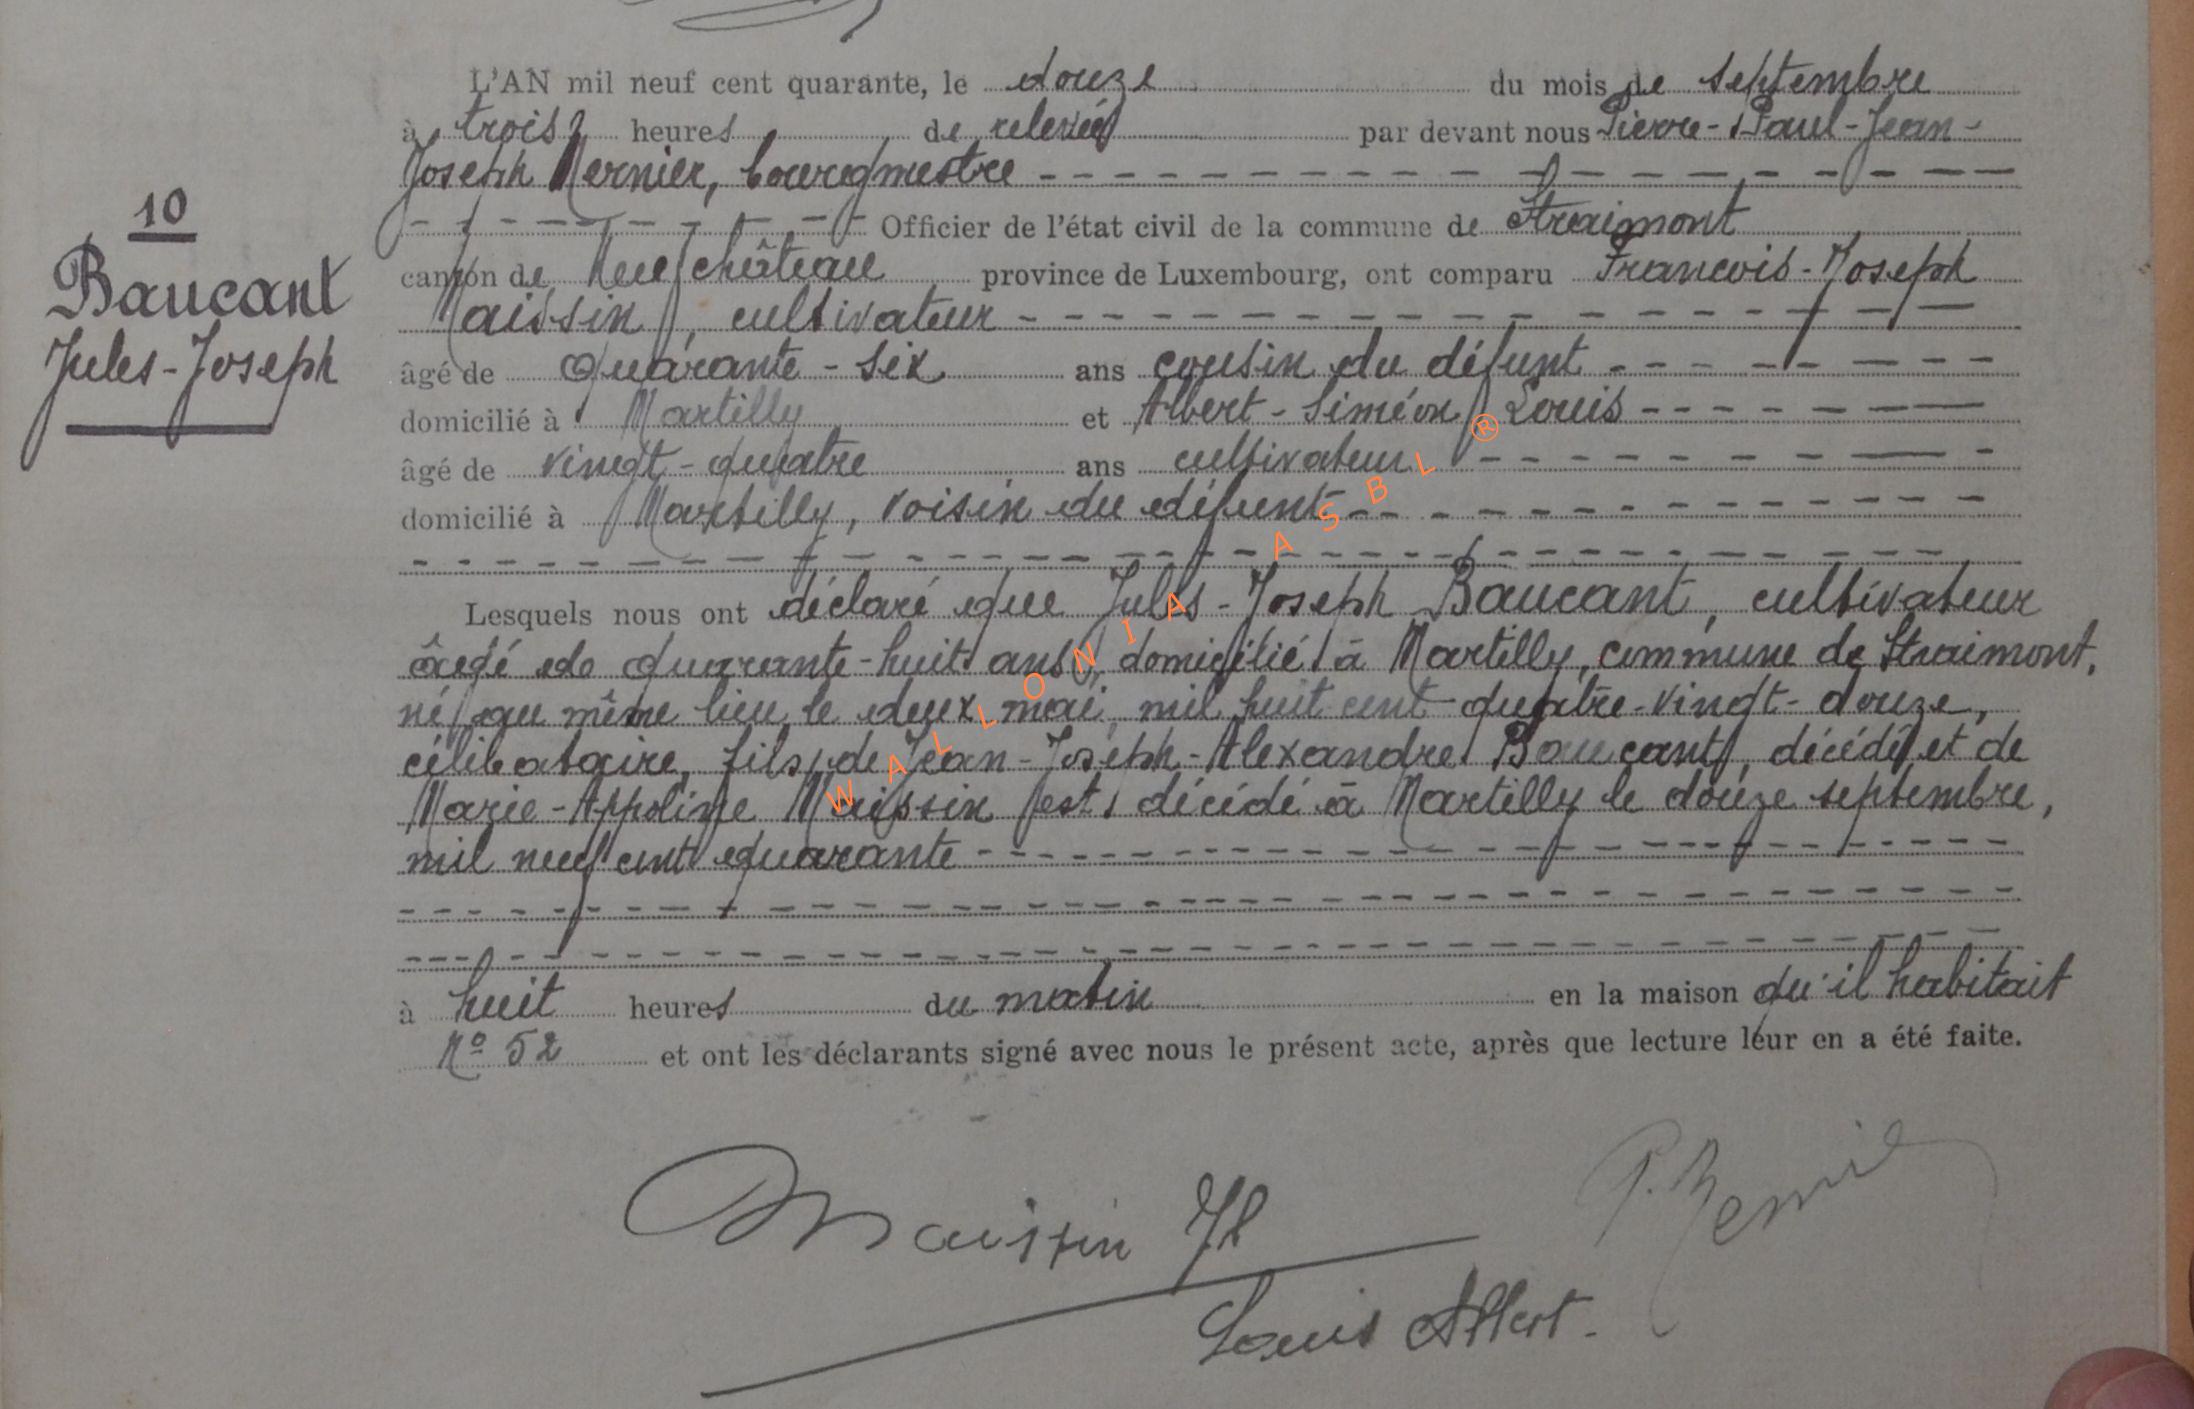 L'AN mil neuf cent quarante, le douze du mois de septembre
à trois heures de relevée par devant nous Pierre-Paul-Jean-
Joseph Mernier, bourgmestre
10
Officier de l'état civil de la commune de Straimont
Baucant
canton de Neufchâteau province de Luxembourg, ont comparu François-Joseph
Maissin, cultivateur
Jules-Joseph
âgé de quarante-six ans cousin du défunt
domicilié à Martilly et Albert-Siméon Louis
âgé de vingt-quatre ans cultivateur
domicilié à Martilly, voisin du défunt
Lesquels nous ont déclaré que Jules-Joseph Baucant, cultivateur
âgé de quarante-huit ans, domicilié à Martilly, commune de Straimont,
né au même lieu le deux mai mil huit cent quatre-vingt-douze,
célibataire, fils de Jean-Joseph-Alexandre Baucant, décédé et de
Marie-Appoline Maissin est décédé à Martilly le douze septembre,
mil neuf cent quarante
à huit heures du matin en la maison qu'il habitait
No 52 et ont les déclarants signé avec nous le présent acte, après que lecture leur en a été faite.
WALLONIA ASBL ®
Maissin
P. Mernier
Louis Albert.